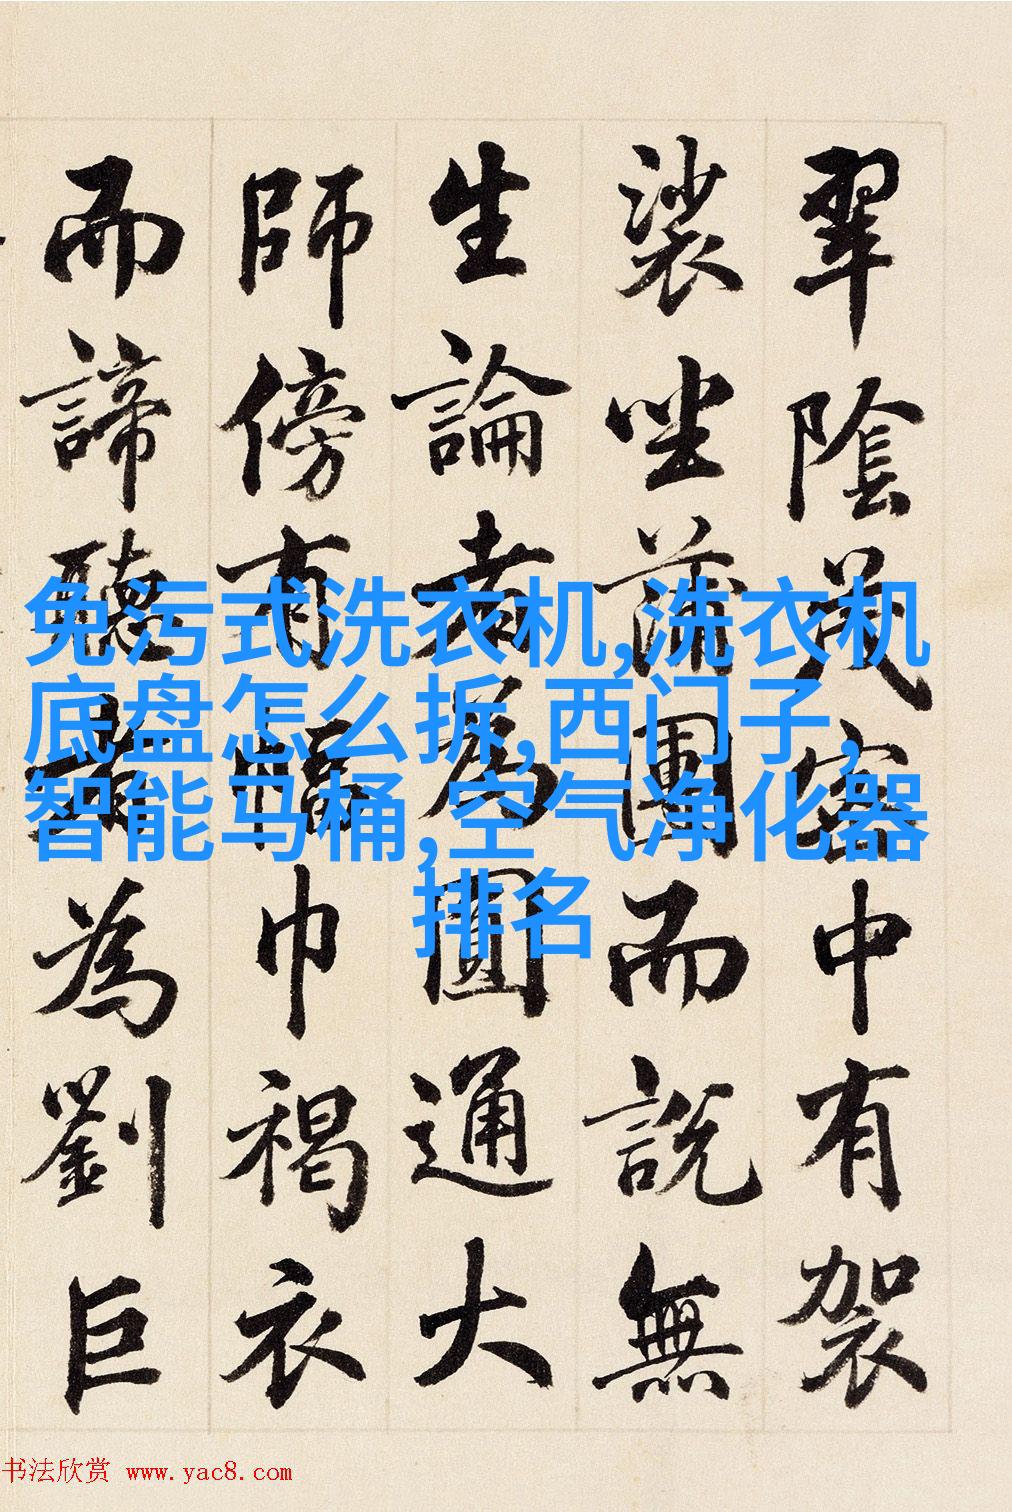 翠陰茂密中有袈
裟坐蒲團而說無
生論者為圓通大
師傍有幅巾褐衣
而諦聽者為劉巨
免污式洗衣机,洗衣机
底盘怎么拆,西门子,
智能马桶,空气净化器
排名
书法欣赏 www.yac8.com